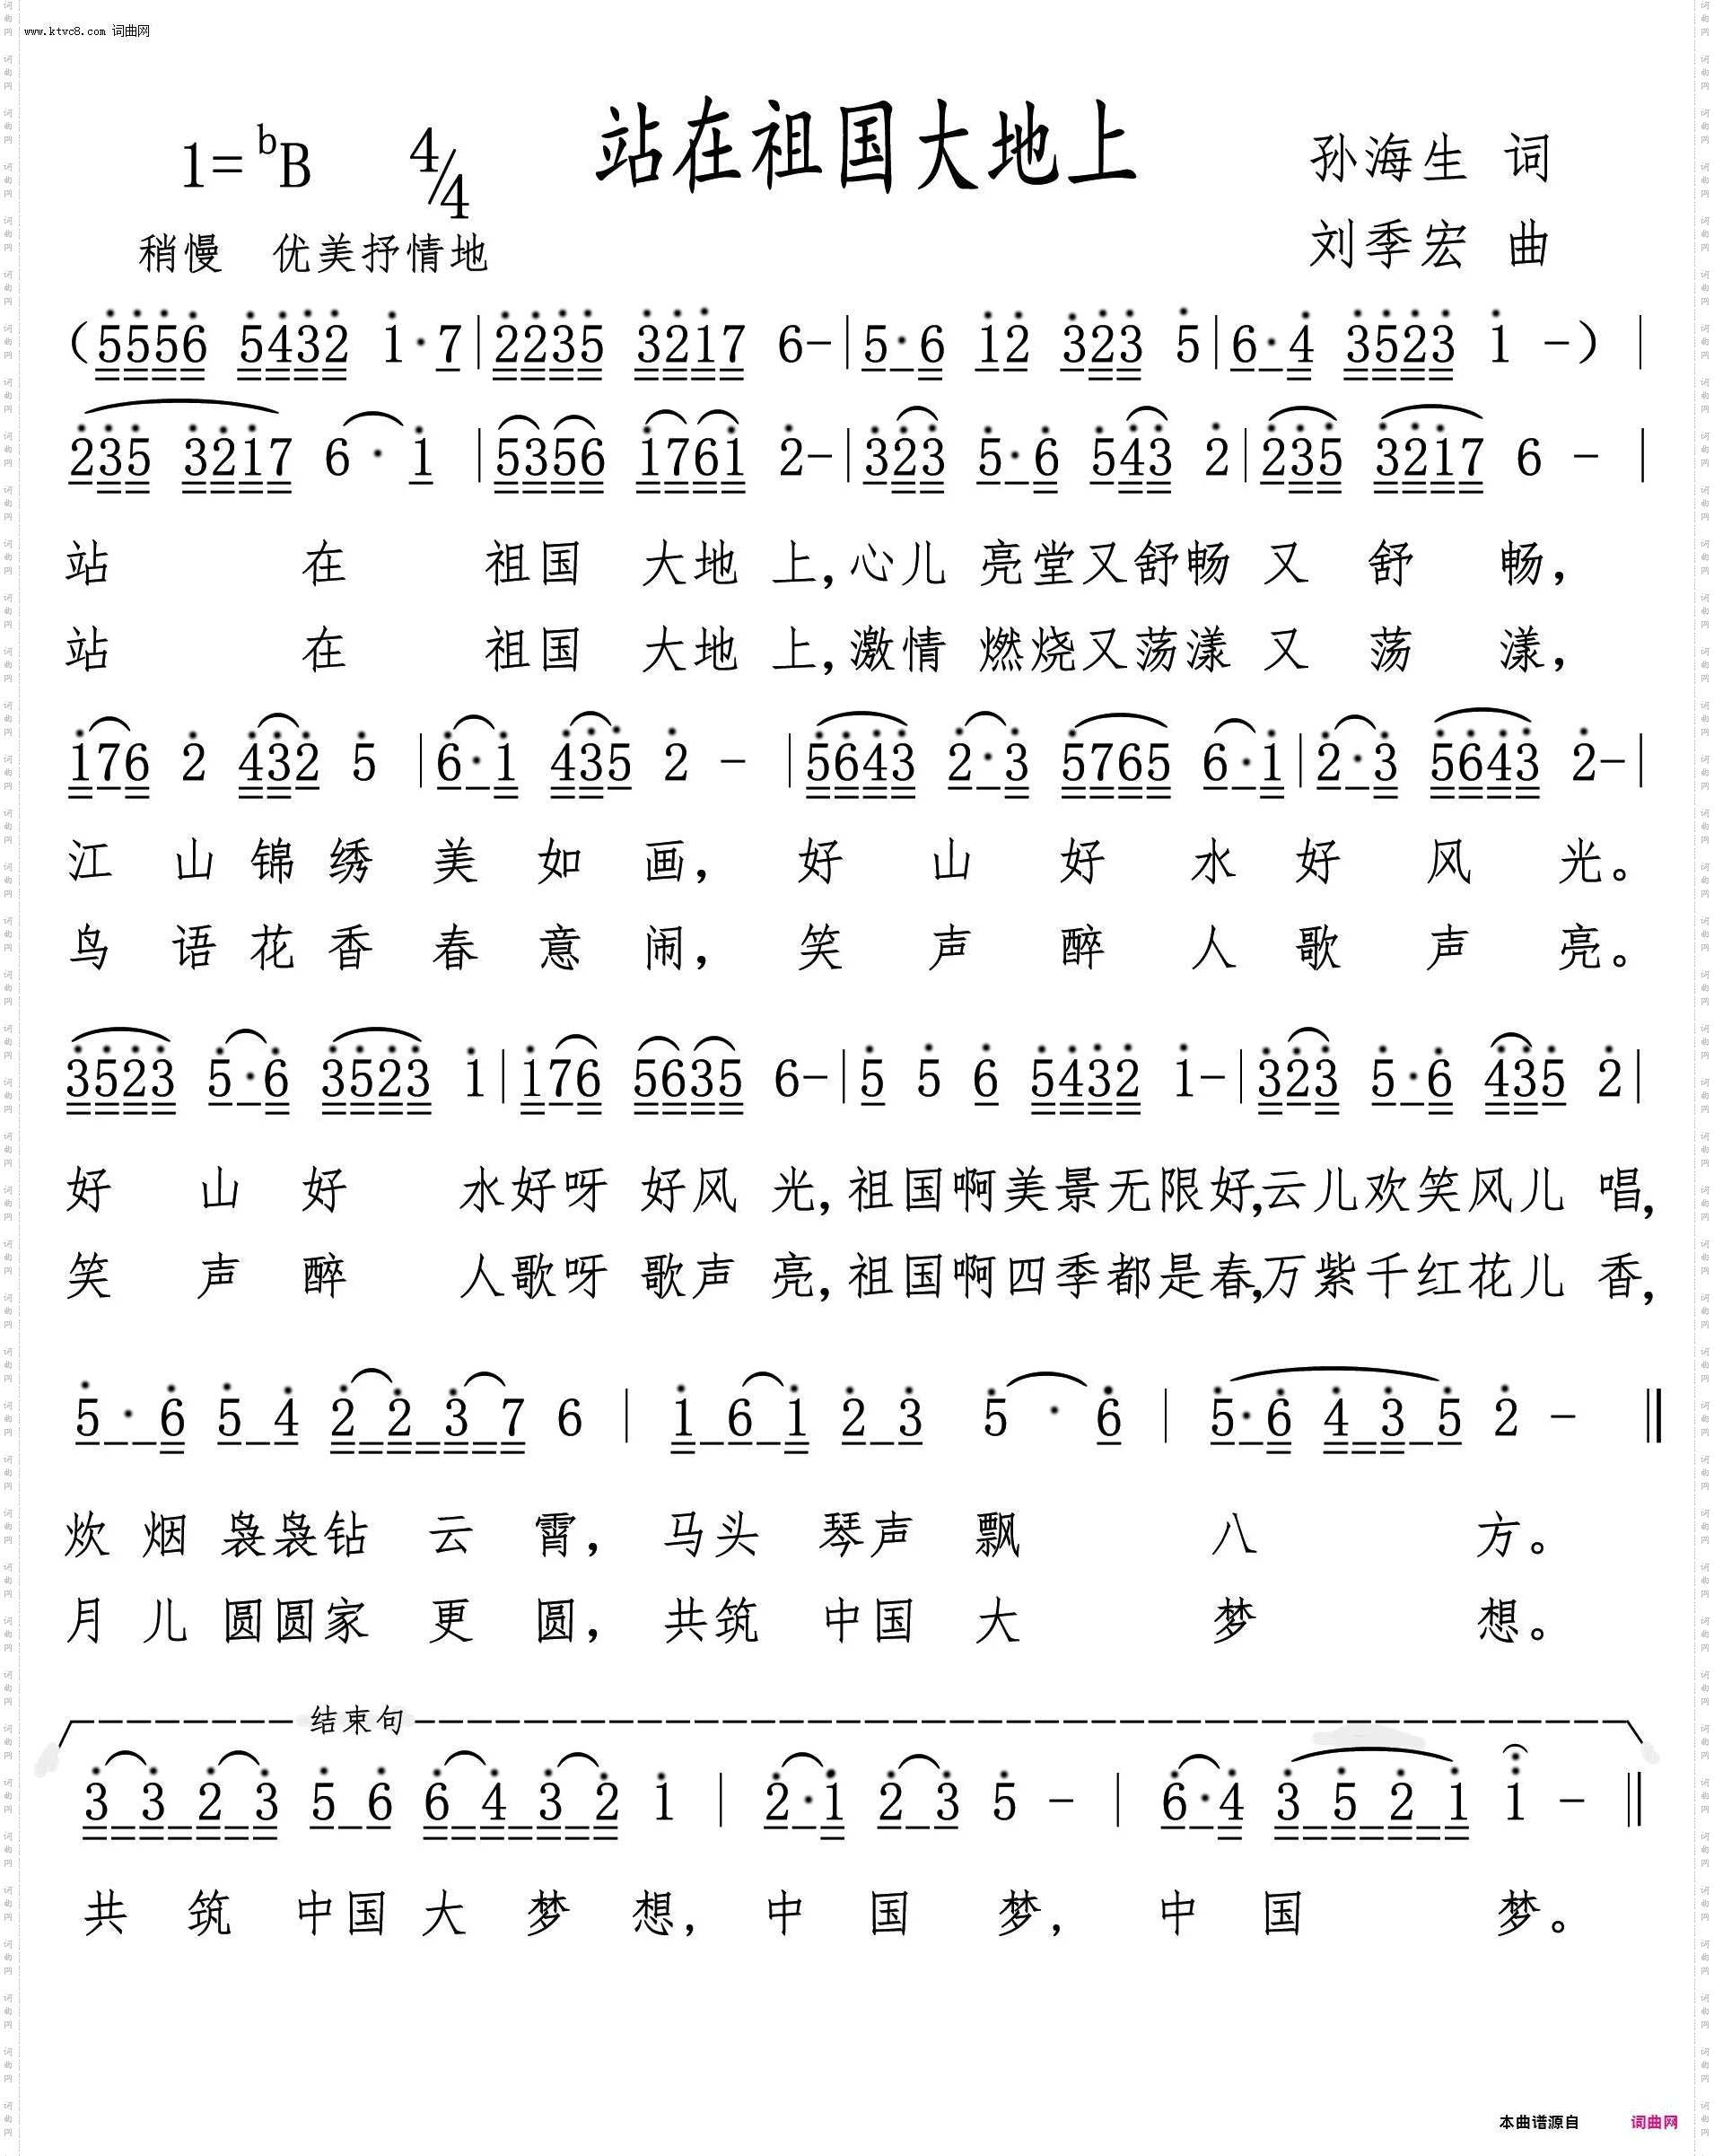 www.ktvc8.com 词曲网
站在祖国大地上
1= bB 4/4
孙海生 词
稍慢 优美抒情地
刘季宏 曲
（5556 5432 1·7|2235 3217 6-|5·6 12 323 5|6·4 3523 1 -）|
235 3217 6·1 |5356 1761 2-|323 5·6 543 2|235 3217 6 - |
站 在 祖国 大地 上,心儿 亮堂又舒畅 又 舒 畅，
站 在 祖国 大地 上,激情 燃烧又荡漾 又 荡 漾，
176 2 432 5 |6·1 435 2 - |5643 2·3 5765 6·1|2·3 5643 2-|
江 山 锦 绣 美 如 画， 好 山 好 水 好 风 光。
鸟 语 花 香 春 意 闹， 笑 声 醉 人 歌 声 亮。
3523 5·6 3523 1|176 5635 6-|5 5 6 5432 1-|323 5·6 435 2|
好 山 好 水好呀 好风 光,祖国啊美景无限好,云儿欢笑风儿 唱,
笑 声 醉 人歌呀 歌声 亮,祖国啊四季都是春,万紫千红花儿 香,
5·6 5 4 2 2 3 7 6 | 1 6 1 2 3 5 · 6 | 5·6 4 3 5 2 - ‖
炊 烟 袅袅钻 云 霄， 马头 琴声 飘 八 方。
月 儿 圆圆家 更 圆， 共筑 中国 大 梦 想。
结束句
3 3 2 3 5 6 6 4 3 2 1 | 2·1 2 3 5 - | 6·4 3 5 2 1 1 - ‖
共 筑 中国 大 梦 想, 中 国 梦, 中 国 梦。
本曲谱源自 词曲网